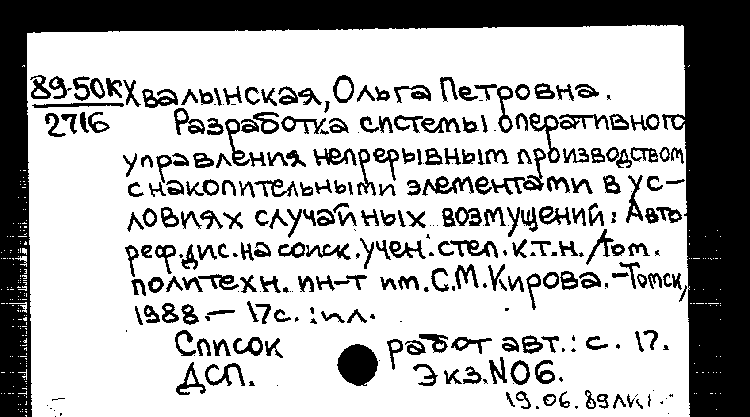 89-50К Хвалынская, Ольга Петровна.
2716 Разработка системы оперативного
управления непрерывным производством
с накопительными элементами в ус-
ловиях случайных возмущений: Авто-
реф.дис.на соиск.учен.степ.к.т.н./Том.
политехн. ин-т им.С.М.Кирова.-Томск,
1988.- 17с.:ил.
Список работ авт.: с. 17.
ДСП. Экз.№06.
19.06.89